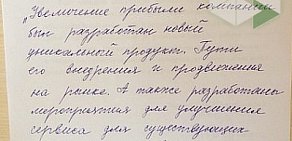 „Увеличение прибыли компании
был разработан новый
уникальный продукт. Пути
его внедрения и продвижения
на рынке. А также разработаны
мероприятия для улучшения
сервиса для существующих